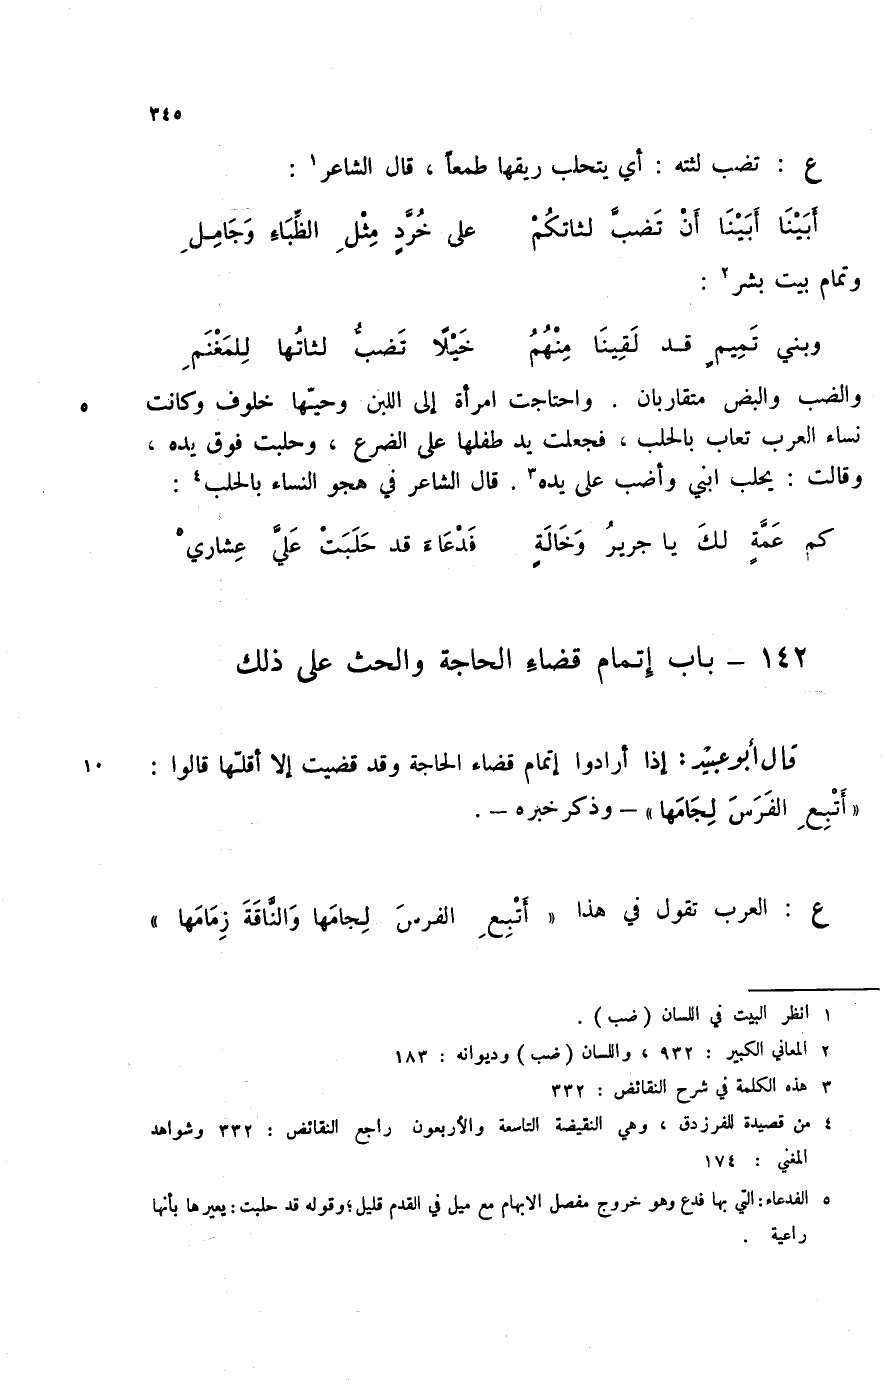 ٣٤٥
ع : تضب لثته : أي يتحلب ريقها طمعاً ، قال الشاعر١ :
أَبَيْنَا أَبَيْنَا أَنْ تَضبَّ لثاتكُمْ على خُرَّدٍ مِثْلِ الظِّبَاءِ وَجَامِلِ
وتمام بيت بشر٢ :
وبني تَمِيمٍ قد لَقِينَا مِنْهُمُ خَيْلًا تَضبُّ لثاتُها لِلمَغْنَمِ
والضب والبض متقاربان . واحتاجت امرأة إلى اللبن وحيّها خلوف وكانت ٥
نساء العرب تعاب بالحلب ، فجعلت يد طفلها على الضرع ، وحلبت فوق يده ،
وقالت : يحلب ابني وأضب على يده٣ . قال الشاعر في هجو النساء بالحلب٤ :
كم عَمَّةٍ لكَ يا جريرُ وَخَالَةٍ فَدْعَاءَ قد حَلَبَتْ عَليَّ عِشاري٥
١٤٢ – باب إتمام قضاء الحاجة والحث على ذلك
قال أبو عبيد : إذا أرادوا إتمام قضاء الحاجة وقد قضيت إلا أقلّها قالوا : ١٠
« أَتْبِعِ الفَرَسَ لِجَامَها » – وذكر خبره – .
ع : العرب تقول في هذا « أَتْبِعِ الفرسَ لِجامَها وَالنَّاقَةَ زِمَامَها »
١ انظر البيت في اللسان ( ضب ) .
٢ المعاني الكبير : ٩٣٢ ، واللسان ( ضب ) وديوانه : ١٨٣
٣ هذه الكلمة في شرح النقائض : ٣٣٢
٤ من قصيدة للفرزدق ، وهي النقيضة التاسعة والأربعون راجع النقائض : ٣٣٢ وشواهد
المغني : ١٧٤
٥ الفدعاء : التي بها فدع وهو خروج مفصل الابهام مع ميل في القدم قليل ؛ وقوله قد حلبت : يعيرها بأنها
راعية .